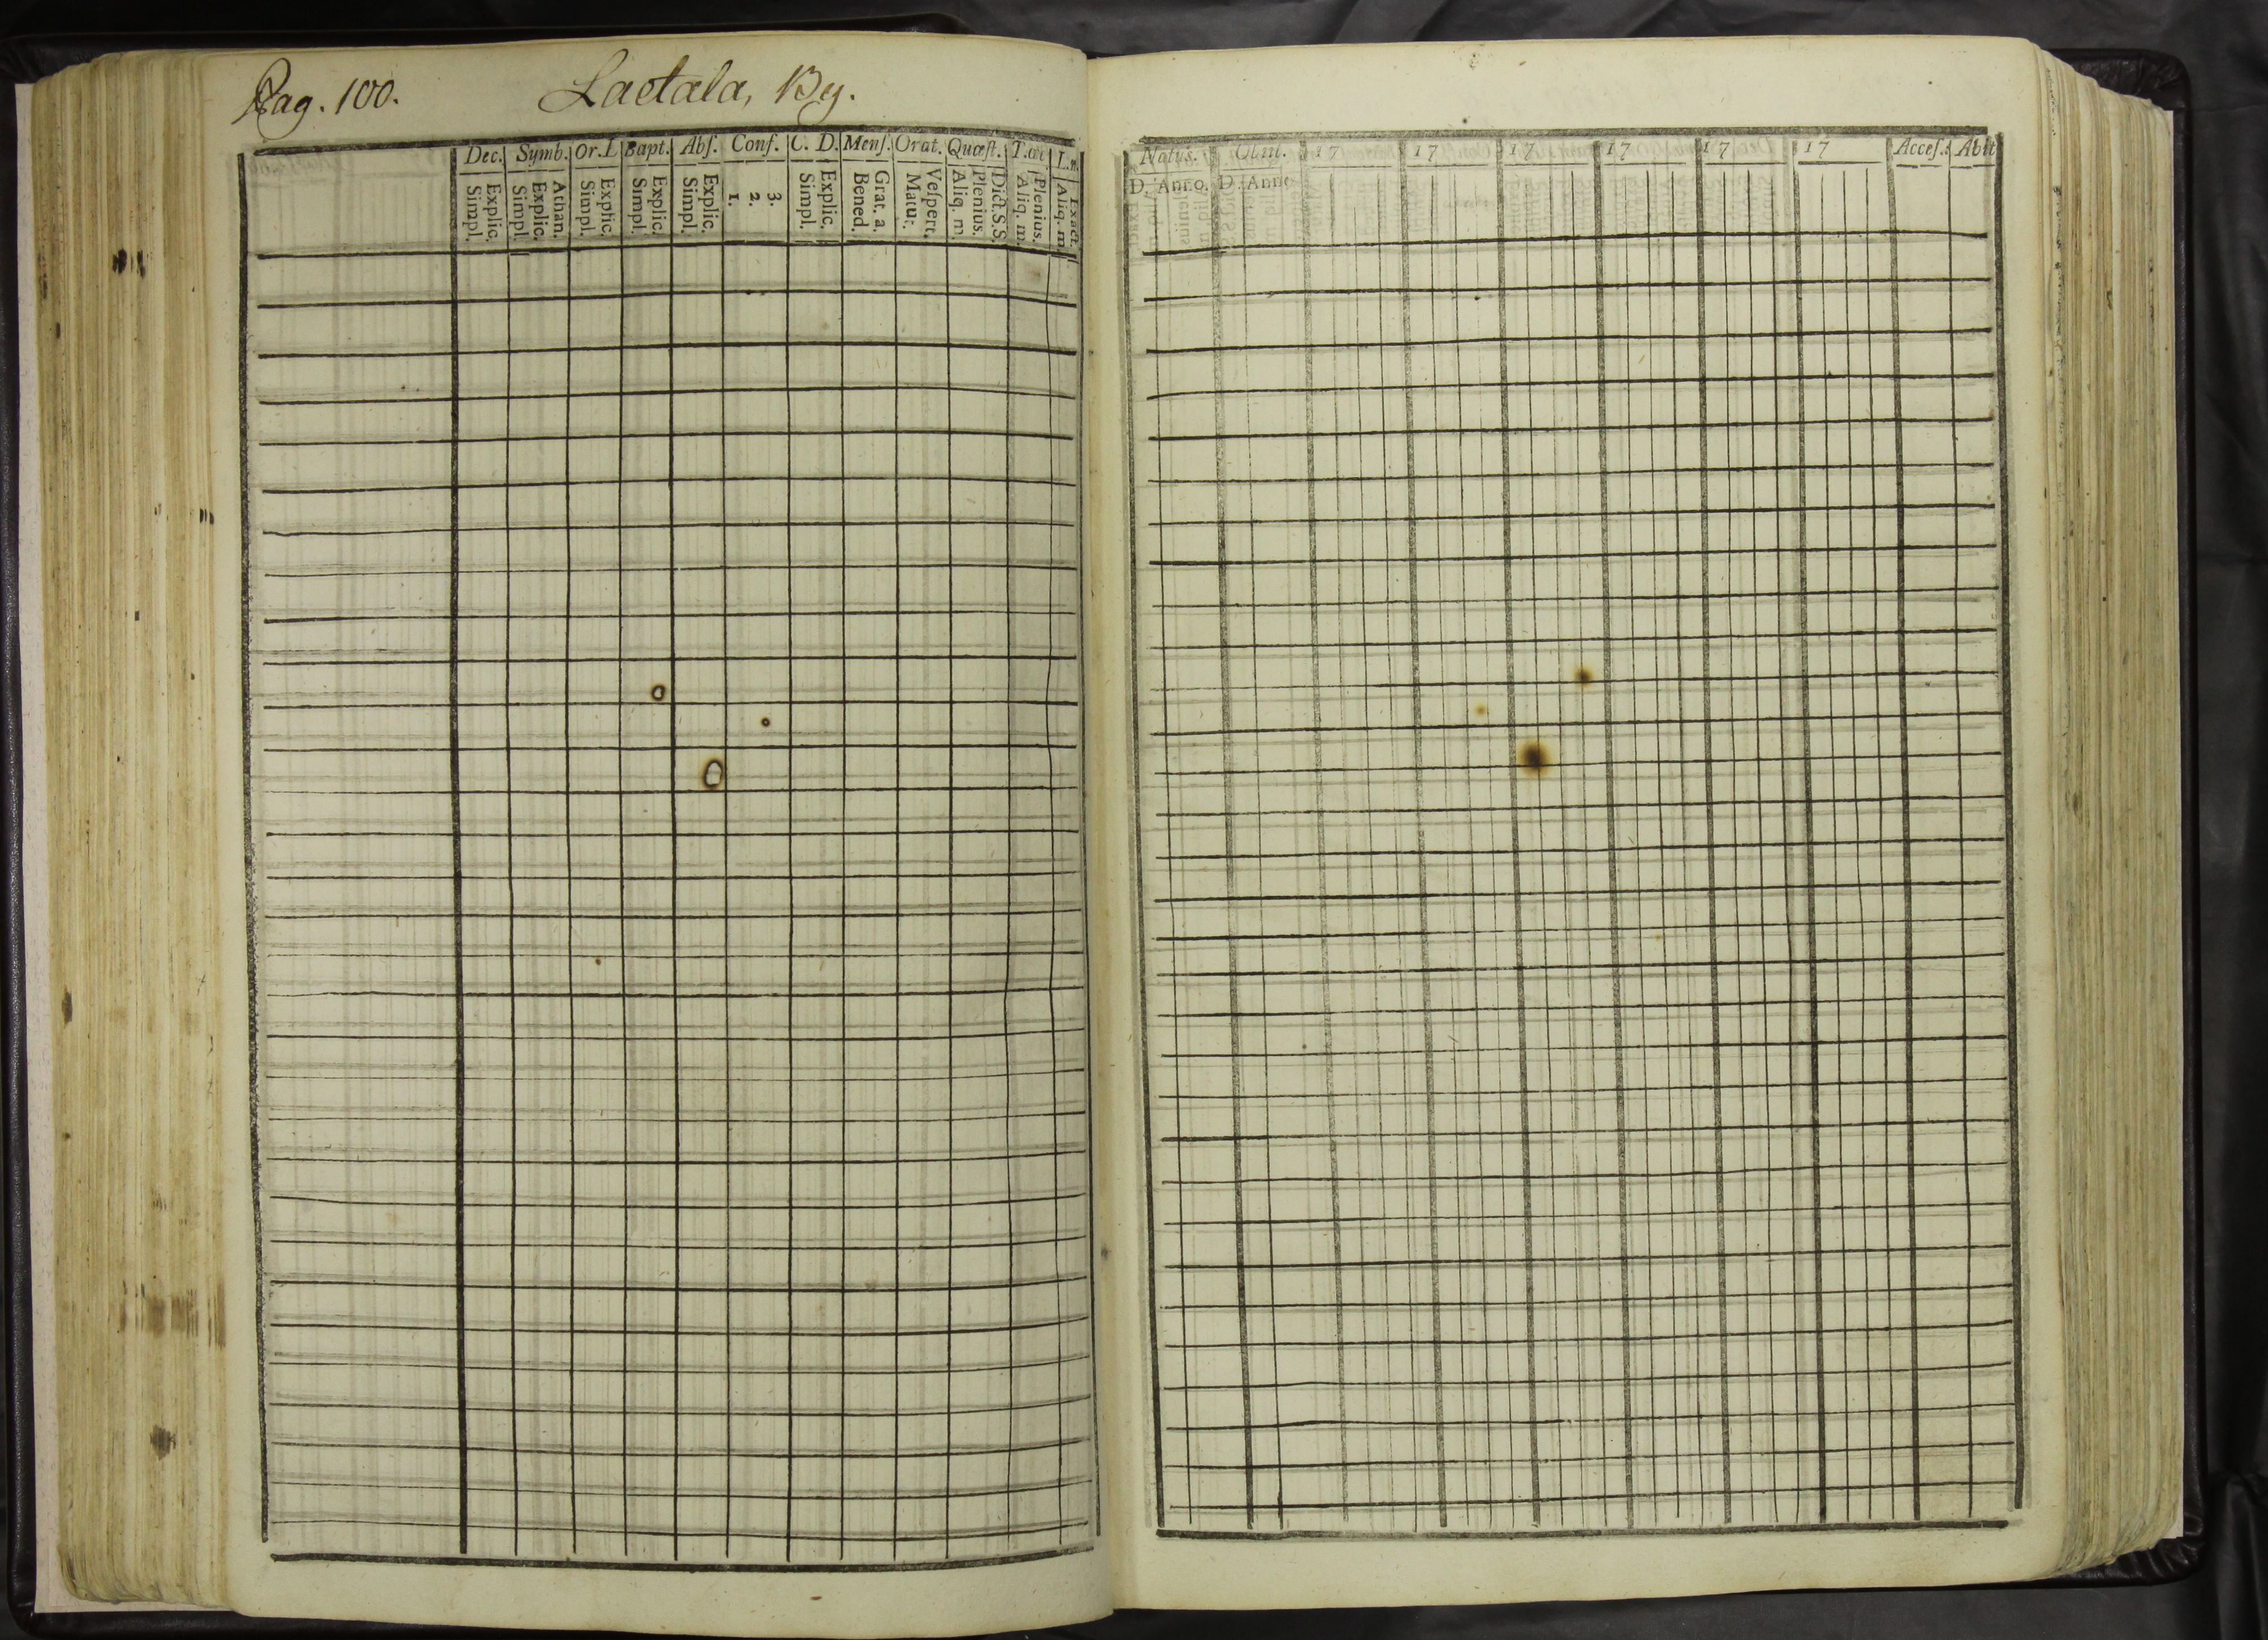 Pag. 100. Lactala, By.
Dec. Symb. Or. D Bapt. Abſ. Conf. C. D. Menſ. Orat. Quæſt. T. œc L. n.
Simpl. Explic. Simpl. Explic. Athan. Simpl. Explic. Simpl. Explic. Simpl. Explic. 1. 2. 3. Simpl. Explic. Bened. Grat. a. Matut. Veſpert. Aliq. m. Plenius. Dict. S. S. Aliq. m. Plenius. Aliq. m. Exact.
Natus. 17 17 17 17 17 17 Acceſ. Abit
D. Anno. D. Anno